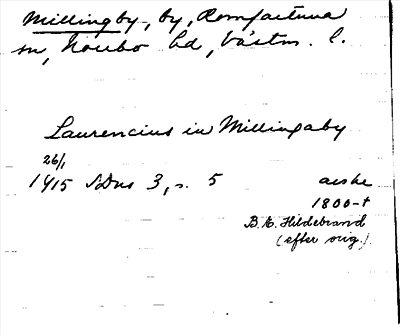 Millingby, by, Romfartuna
sn, Norrbo hd, Västm. l.
Laurencius in Millingaby
26/1
1415 SDns 3, s. 5 avskr
1800-t
B. E. Hildebrand
(efter orig.)